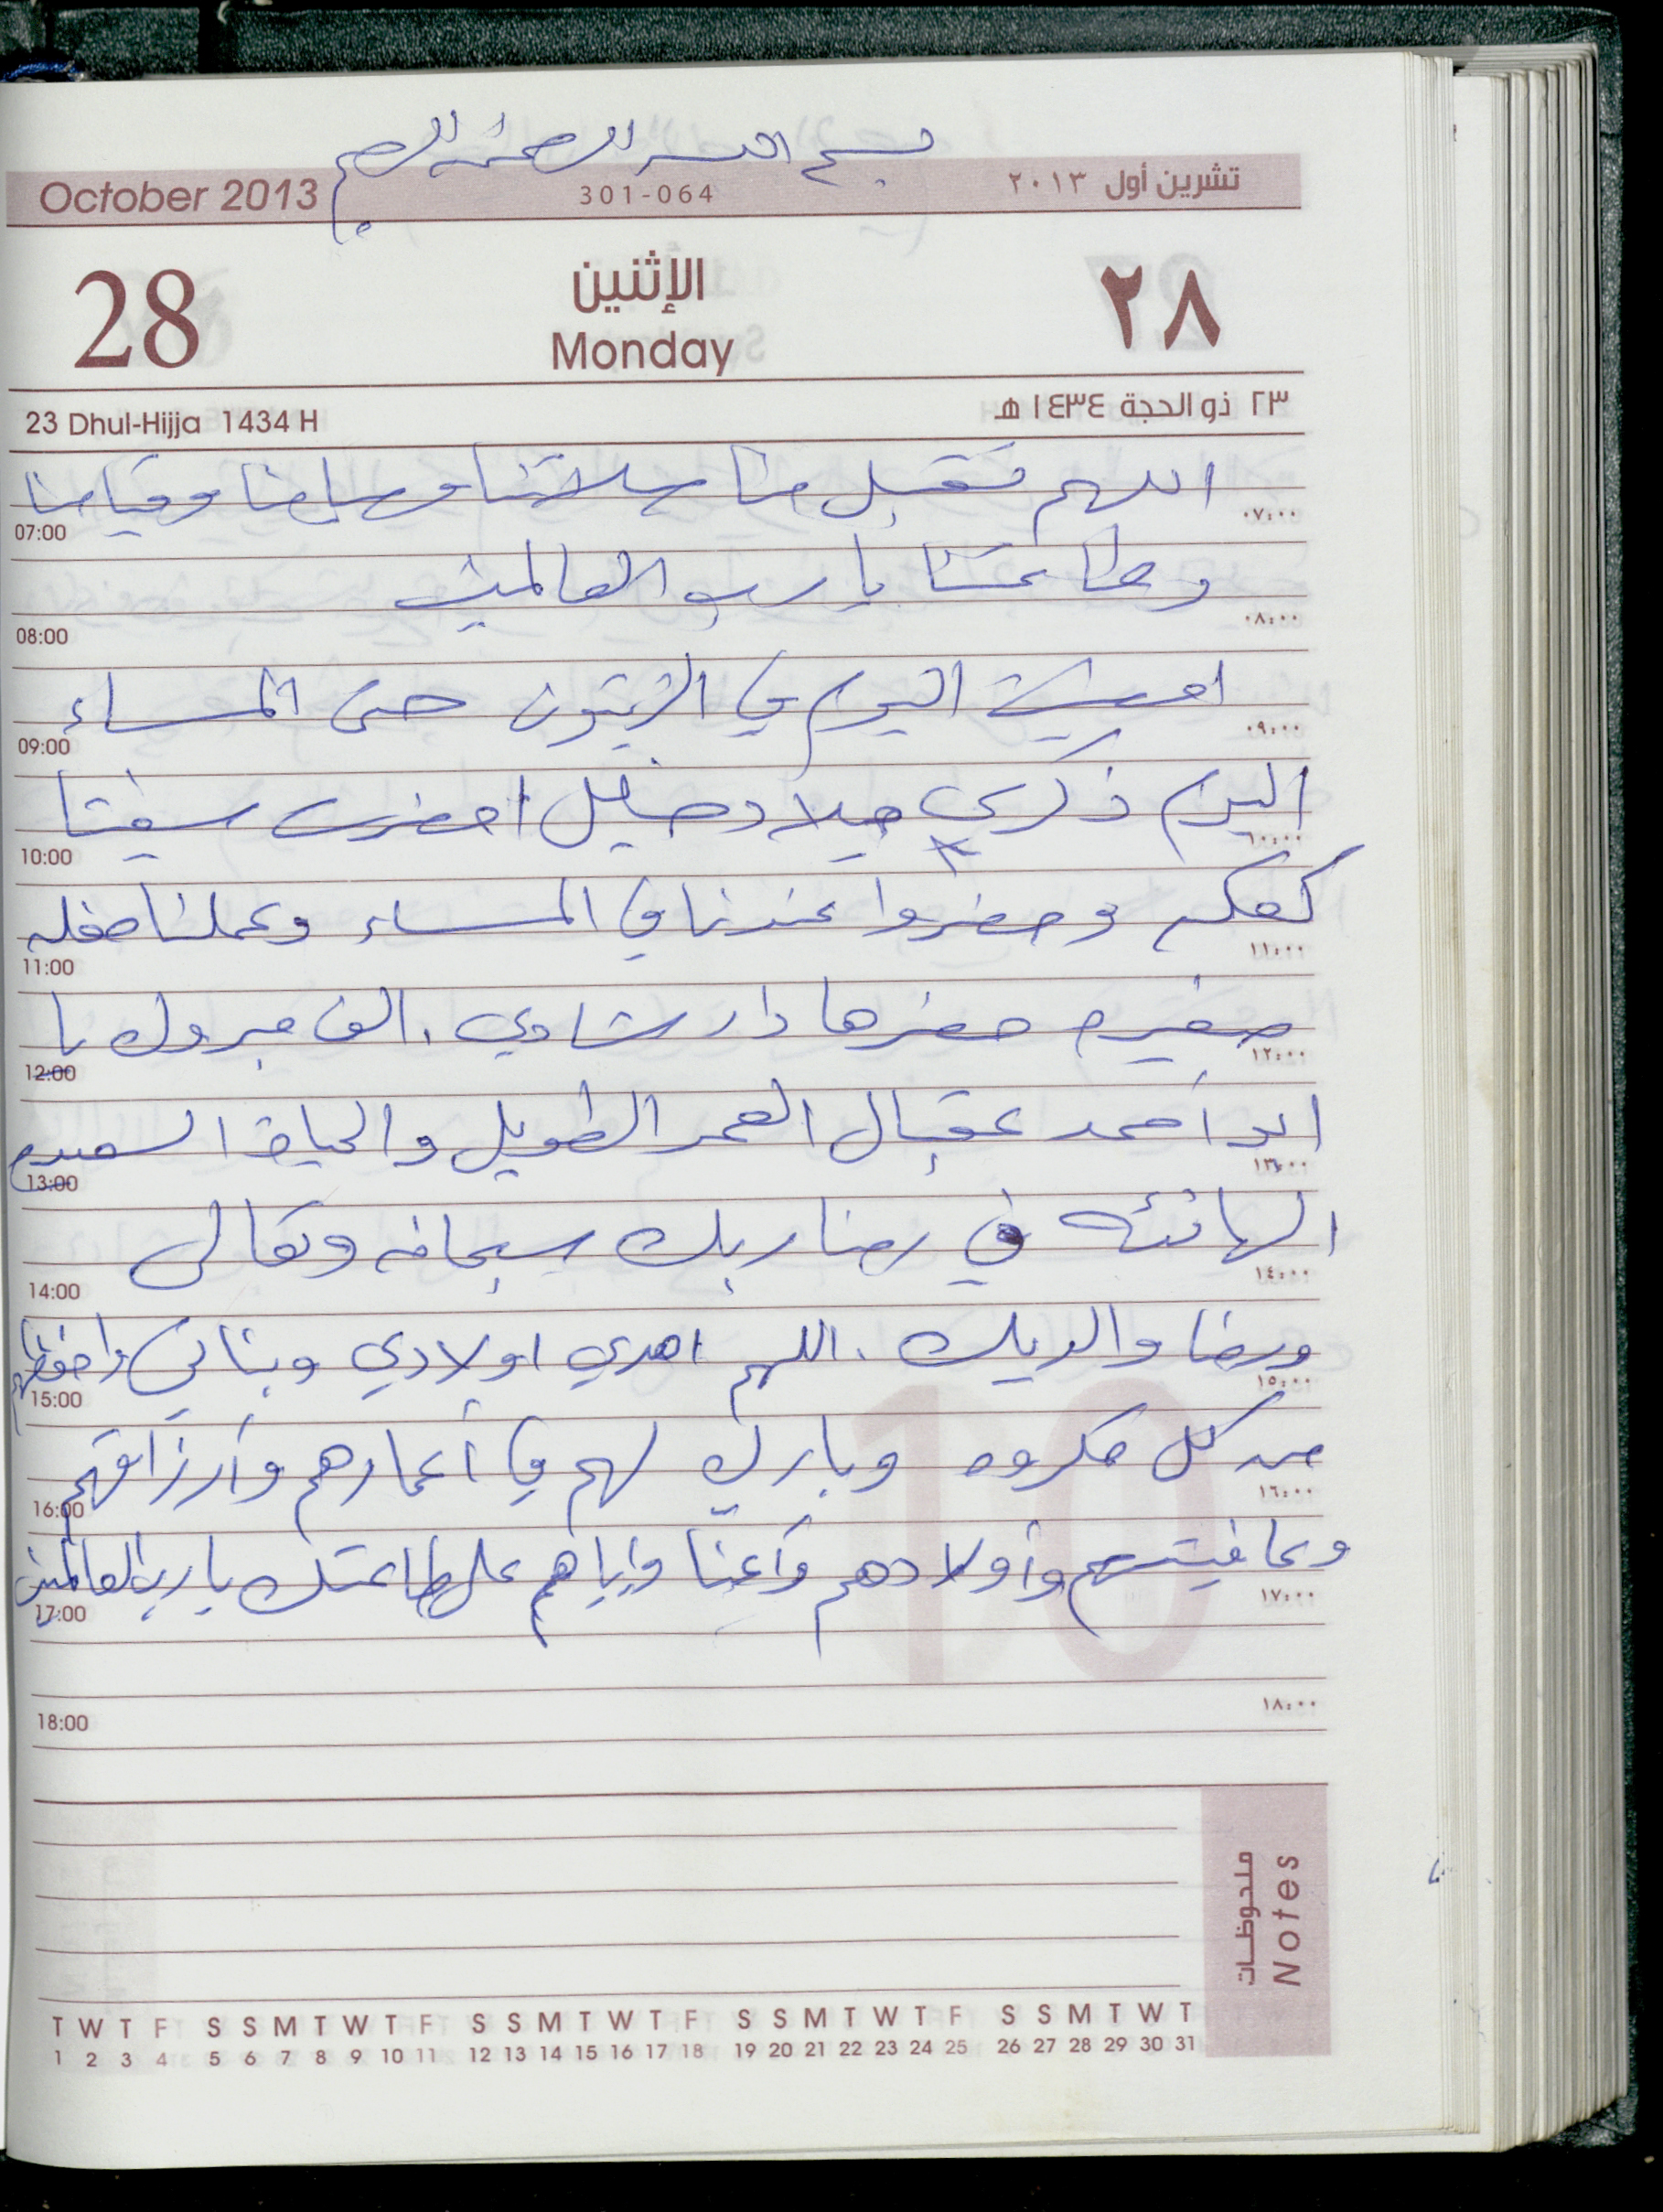 بسم الله الرحمن الرحيم
October 2013 301-064 تشرين أول ٢٠١٣
28 الإثنين ٢٨
Monday
23 Dhul-Hijja 1434 H ٢٣ ذو الحجة ١٤٣٤ هـ
اللهم تقبل منا صلاتنا وصيامنا وقيامنا
07:00 ٠٧:٠٠
وطاعتنا يا رب العالمين
08:00 ٠٨:٠٠
امضيت اليوم في الزيتون حتى المساء
09:00 ٠٩:٠٠
اليوم ذكرى ميلاد احضرت سفيتا
10:00 ١٠:٠٠
كعكه وحضروا عندنا في المساء وعملنا حفله
11:00 ١١:٠٠
صغيره حضرها دار شادي . الف مبروك يا
12:00 ١٢:٠٠
ابو أحمد عقبال العمر الطويل والحياة السعيده
13:00 ١٣:٠٠
الهانئه في رضا ربك سبحانه وتعالى
14:00 ١٤:٠٠
ورضا والديك . اللهم اهدي اولادي وبناتي واحفظهم
15:00 ١٥:٠٠
من كل مكروه وبارك لهم في أعمارهم وأرزاقهم
16:00 ١٦:٠٠
وعافيتهم وأولادهم وأعنا واياهم على طاعتك يا رب العالمين
17:00 ١٧:٠٠
18:00 ١٨:٠٠
10
ملحوظات
Notes
T W T F S S M T W T F S S M T W T F S S M T W T F S S M T W T
1 2 3 4 5 6 7 8 9 10 11 12 13 14 15 16 17 18 19 20 21 22 23 24 25 26 27 28 29 30 31